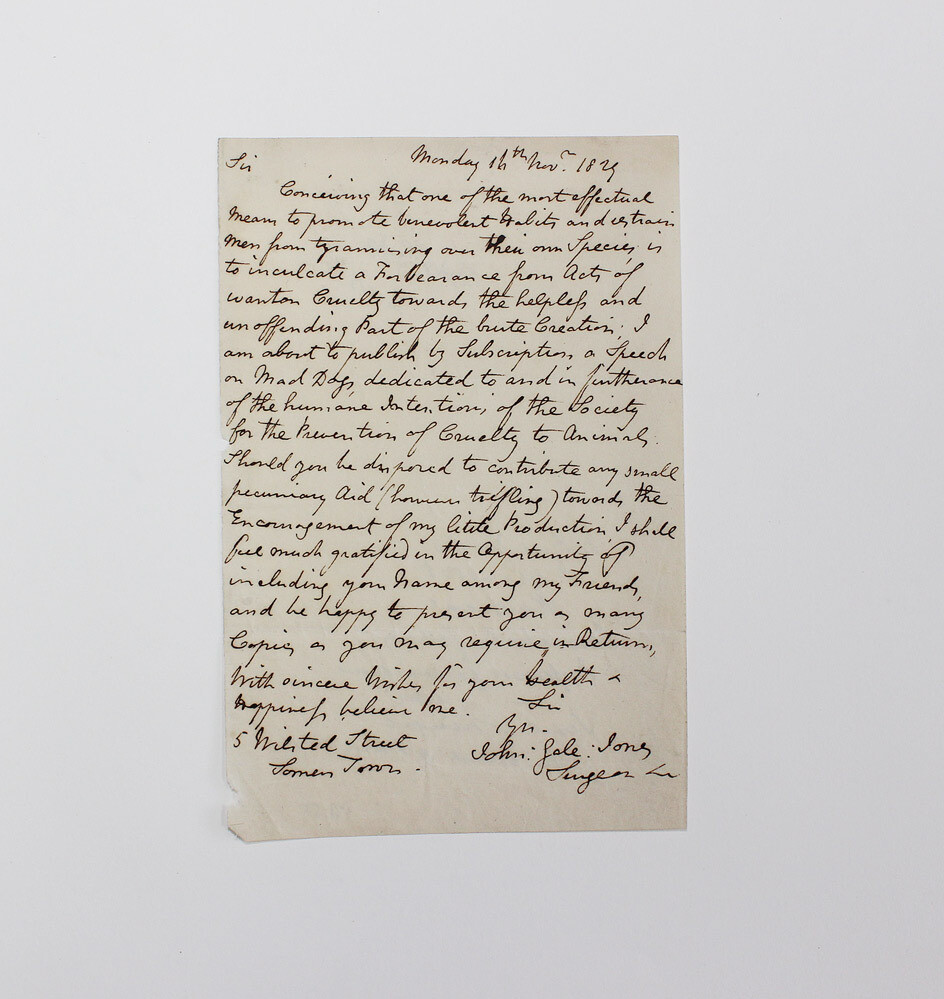 Monday 16th Novr. 1829
Sir
Conceiving that one of the most effectual
Means to promote benevolent Habits and restrain
Men from tyrannising over their own Species, is
to inculcate a Forbearance from Acts of
wanton Cruelty towards the helpless and
unoffending Part of the brute Creation; I
am about to publish by Subscription a Speech
on Mad Dogs dedicated to and in furtherance
of the humane Intentions of the Society
for the Prevention of Cruelty to Animals.
Should you be disposed to contribute any small
pecuniary Aid (however trifling) towards the
Encouragement of my little Production, I shall
feel much gratified in the Opportunity of
including your Name among my Friends,
and be happy to present you as many
Copies as you may require in Return,
With sincere Wishes for your health &
Happiness believe me. Sir
Yrs.
5 Wilsted Street John: Gale: Jones
Somers Town. Surgeon &c